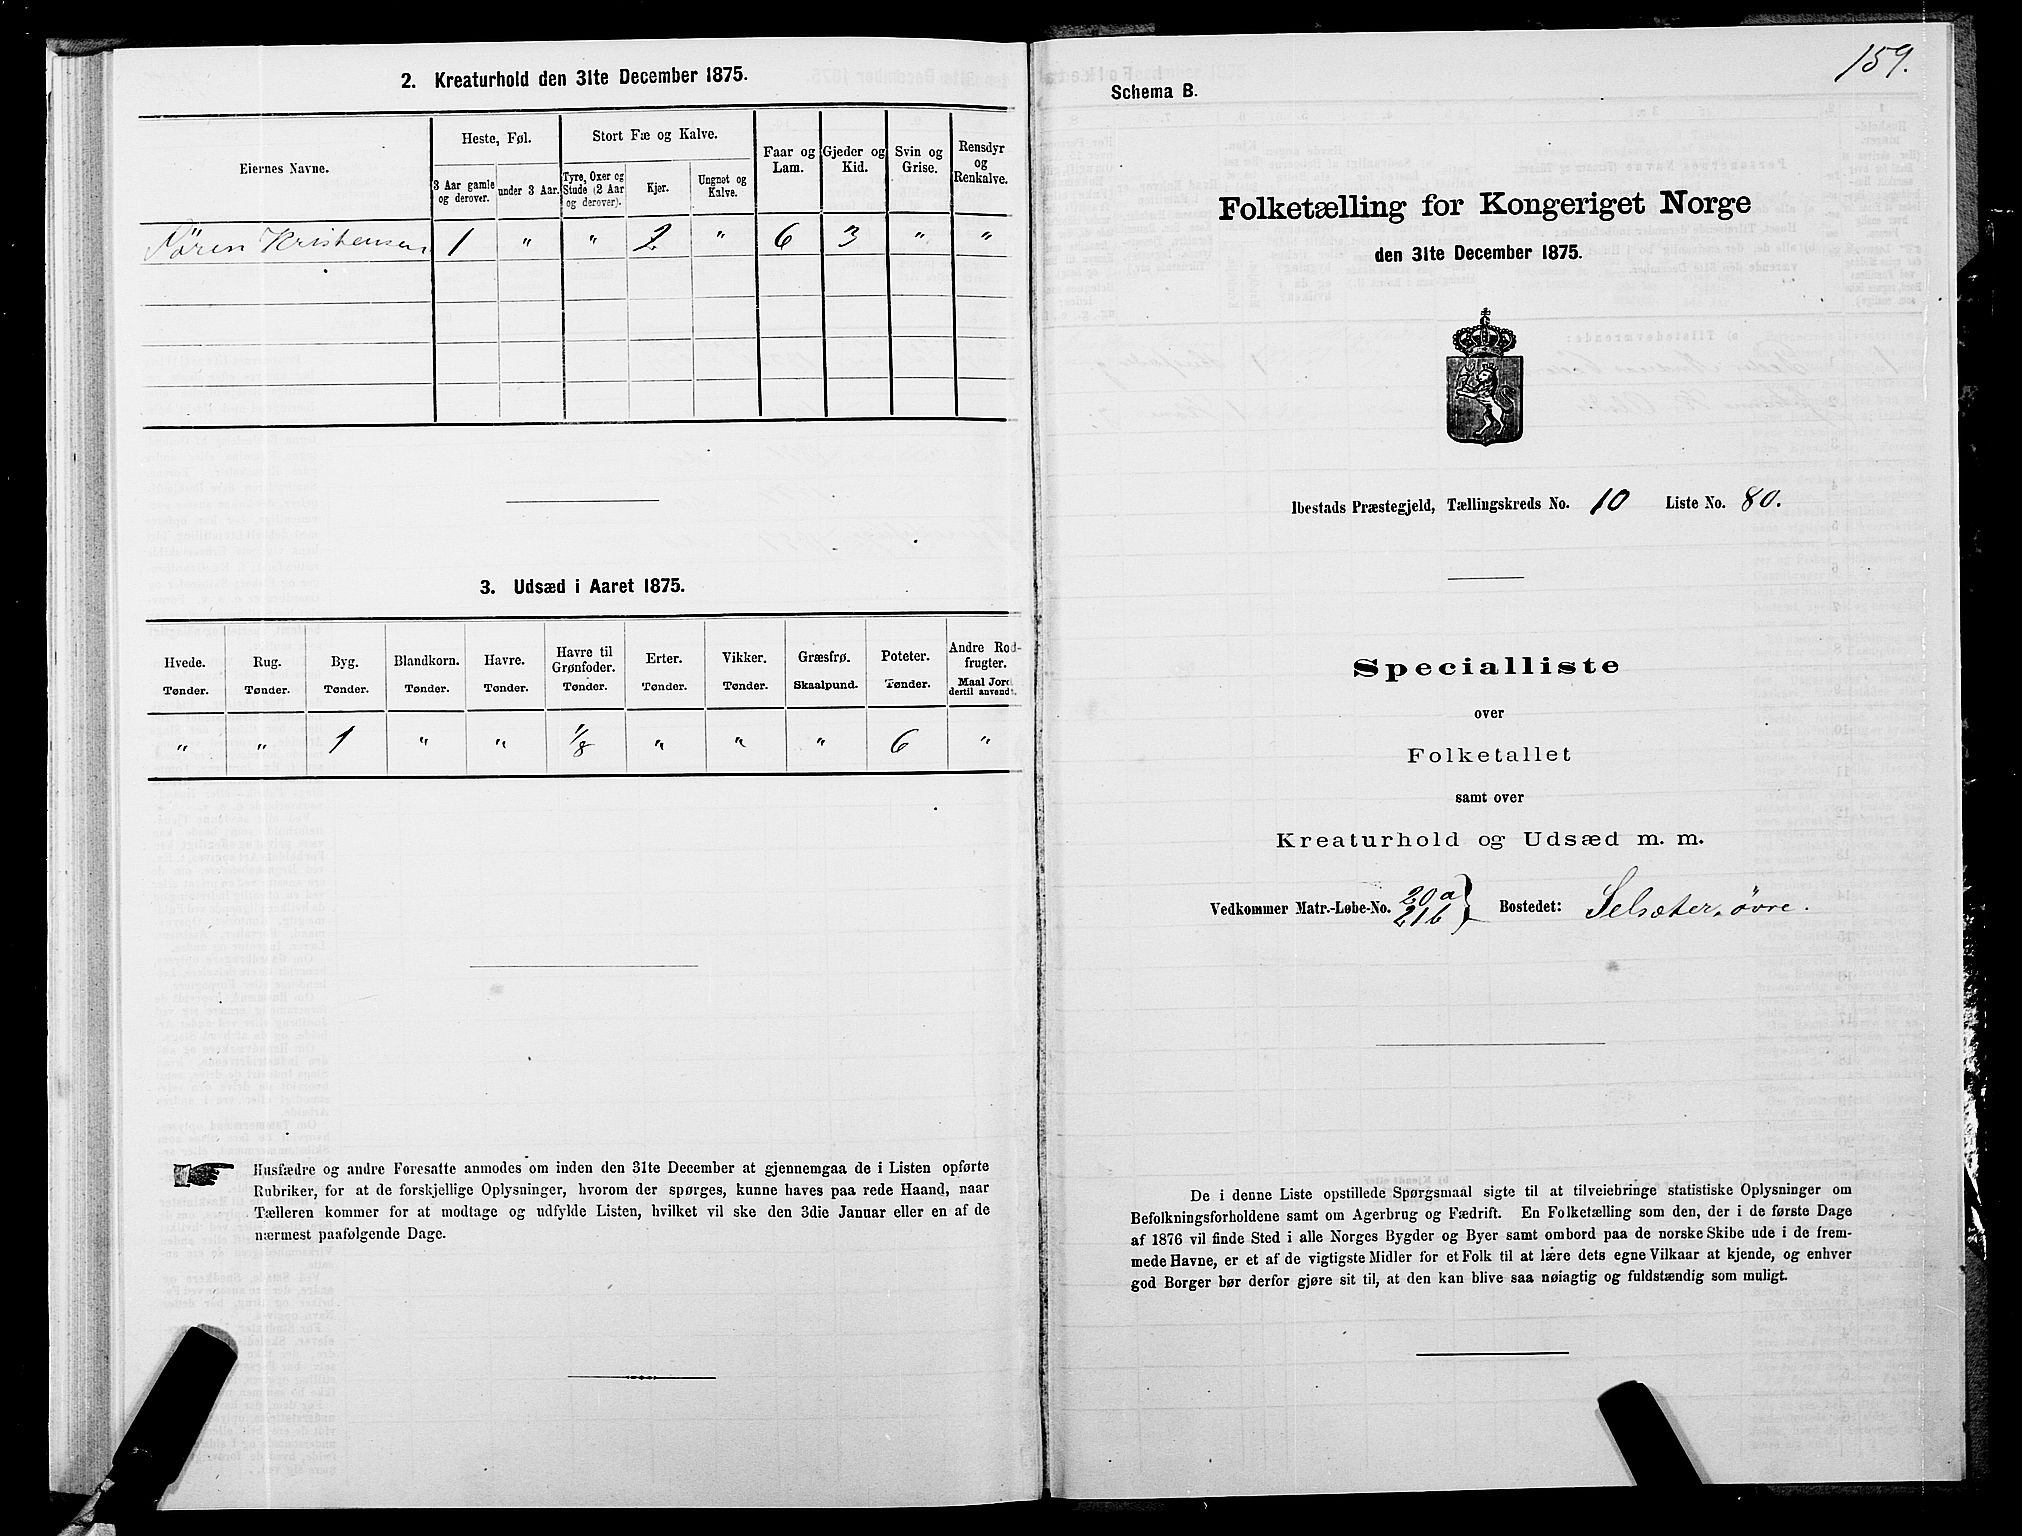 2. Kreaturhold den 31te December 1875.
Eiernes Navne.
Heste, Føl.
3 Aar gamle og derover.
under 3 Aar.
Stort Fæ og Kalve.
Tyre, Oxer og Stude (2 Aar og derover).
Kjør.
Ungnøt og Kalve.
Faar og Lam.
Gjeder og Kid.
Svin og Grise.
Rensdyr og Renkalve.
Sören Kristensen 1 " " 2 " 6 3 " "
3. Udsæd i Aaret 1875.
Hvede. Rug. Byg. Blandkorn. Havre. Havre til Grønfoder. Erter. Vikker. Græsfrø. Poteter. Andre Rodfrugter.
Tønder. Tønder. Tønder. Tønder. Tønder. Tønder. Tønder. Tønder. Skaalpund. Tønder. Maal Jord dertil anvendt.
" " 1 " " 1/8 " " " 6 "
Husfædre og andre Foresatte anmodes om inden den 31te December at gjennemgaa de i Listen opførte
Rubriker, for at de forskjellige Oplysninger, hvorom der spørges, kunne haves paa rede Haand, naar
Tælleren kommer for at modtage og udfylde Listen, hvilket vil ske den 3die Januar eller en af de
nærmest paafølgende Dage.
159.
Schema B.
Folketælling for Kongeriget Norge
den 31te December 1875.
Ibestads Præstegjeld, Tællingskreds No. 10 Liste No. 80.
Specialliste
over
Folketallet
samt over
Kreaturhold og Udsæd m. m.
Vedkommer Matr.-Løbe-No. 20a 21b } Bostedet: Selsæter, øvre.
De i denne Liste opstillede Spørgsmaal sigte til at tilveiebringe statistiske Oplysninger om
Befolkningsforholdene samt om Agerbrug og Fædrift. En Folketælling som den, der i de første Dage
af 1876 vil finde Sted i alle Norges Bygder og Byer samt ombord paa de norske Skibe ude i de frem-
mede Havne, er et af de vigtigste Midler for et Folk til at lære dets egne Vilkaar at kjende, og enhver
god Borger bør derfor gjøre sit til, at den kan blive saa nøiagtig og fuldstændig som muligt.